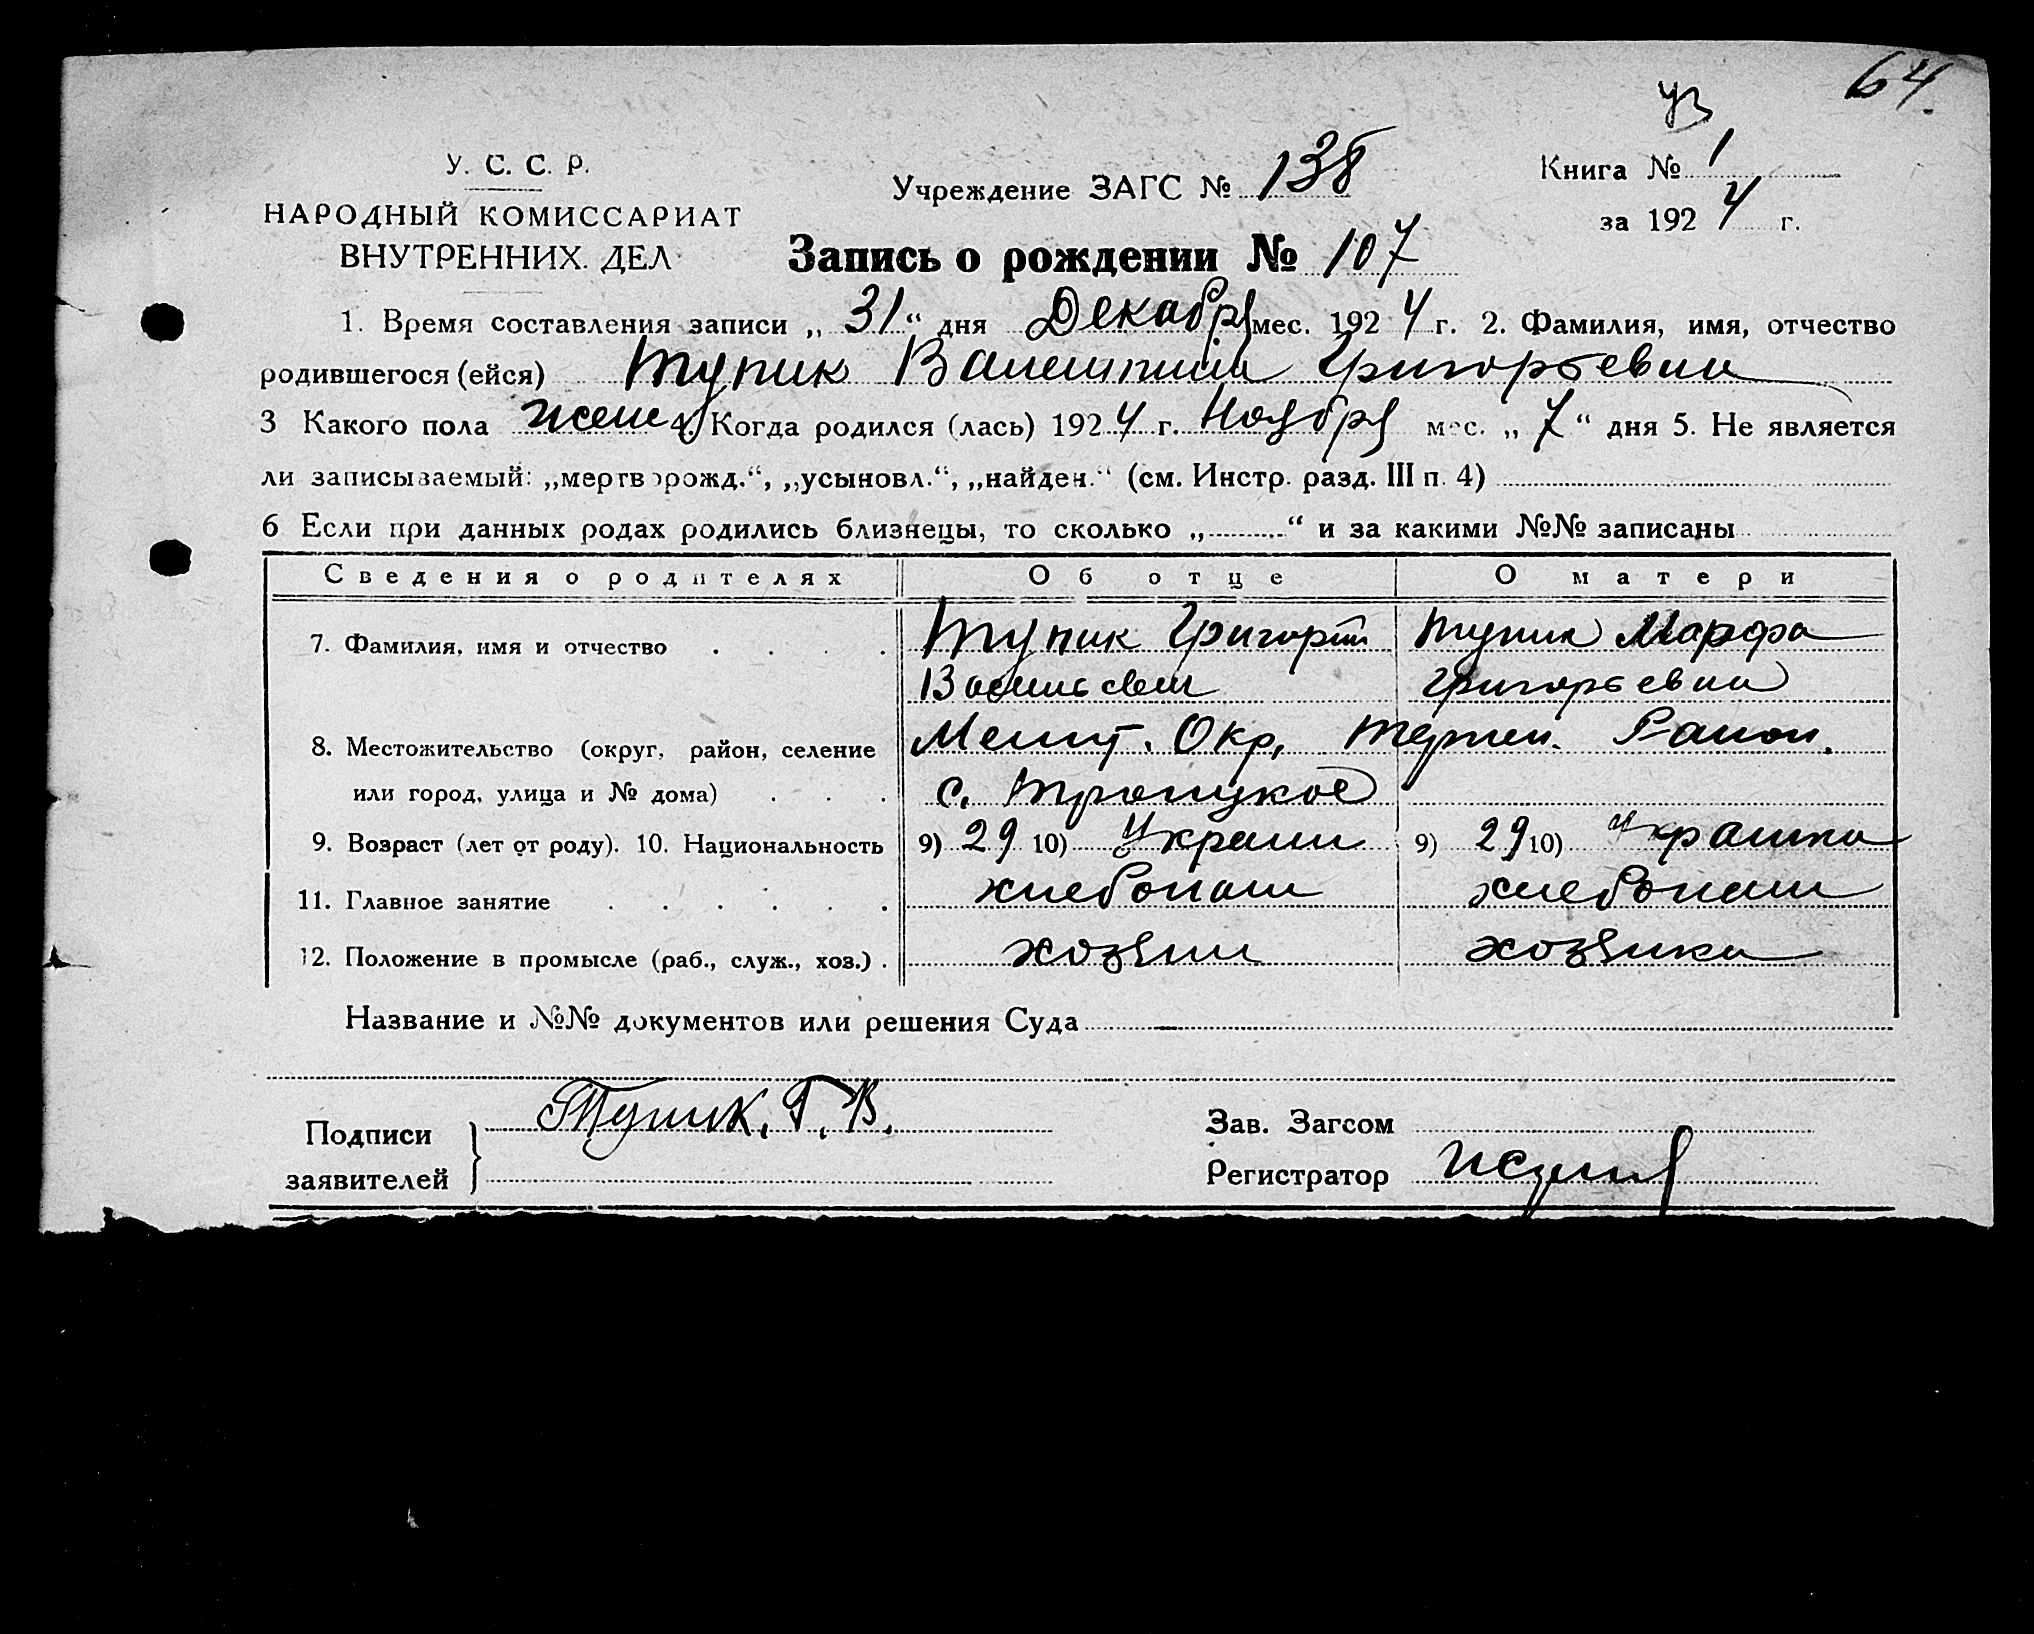 64.
У. С. С. Р.
НАРОДНЫЙ КОМИССАРИАТ
ВНУТРЕННИХ ДЕЛ
Учреждение ЗАГС № 138
Книга № 1
за 1924 г.
Запись о рождении № 107
1. Время составления записи „ 31 “ дня Декабря мес. 1924 г. 2. Фамилия, имя, отчество
родившегося (ейся) Тупик Валентина Григорьевна
3 Какого пола жен 4. Когда родился (лась) 1924 г. Ноября мес. „ 7 “ дня 5. Не является
ли записываемый: „мертворожд.“, „усыновл.“, „найден.“ (см. Инстр. разд. III п. 4)
6 Если при данных родах родились близнецы, то сколько „ “ и за какими №№ записаны
Сведения о родителях Об отце О матери
7. Фамилия, имя и отчество Тупик Григорий Тупик Марфа
Васильевич Григорьевна
8. Местожительство (округ, район, селение Мелит. Окр. Терпен. Район.
или город, улица и № дома) с. Троицкое
9. Возраст (лет от роду). 10. Национальность 9) 29 10) Украин 9) 29 10) Украинка
11. Главное занятие хлебопаш хлебопаш
12. Положение в промысле (раб., служ., хоз.) хозяин хозяйка
Название и №№ документов или решения Суда
Подписи
заявителей
Тупик. Г. В.
Зав. Загсом
Регистратор